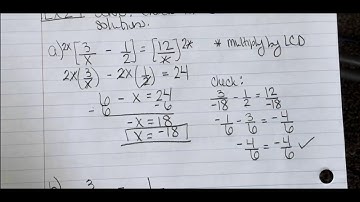 solution.
a) 2x [3/x - 1/2] = [12/x] 2x * multiply by LCD
2x(3/x) - 2x(1/2) = 24
6 - x = 24
-6 -6
-x = 18
x = -18
check:
3/-18 - 1/2 = 12/-18
-1/6 - 3/6 = -4/6
-4/6 = -4/6 ✓